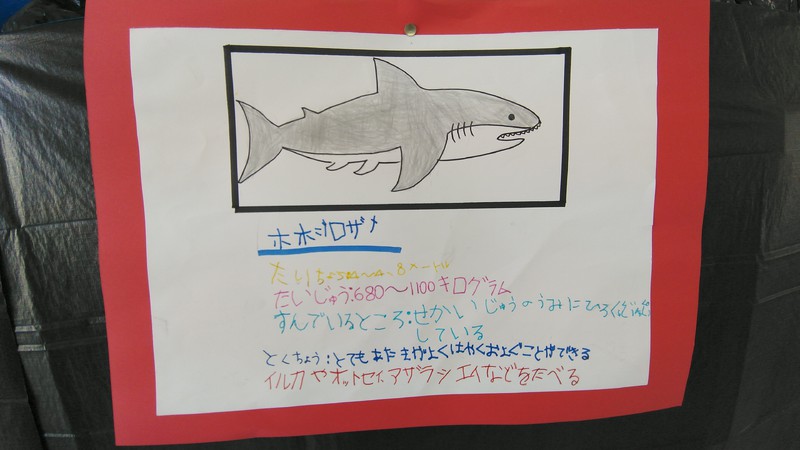 ホホジロザメ
たいちょう 8メートル
たいじゅう:680〜1100キログラム
すんでいるところ:せかいじゅうのうみにひろく
している
とくちょう:とてもあたまがよくはやくおよぐことができる
イルカやオットセイアザラシエイなどをたべる